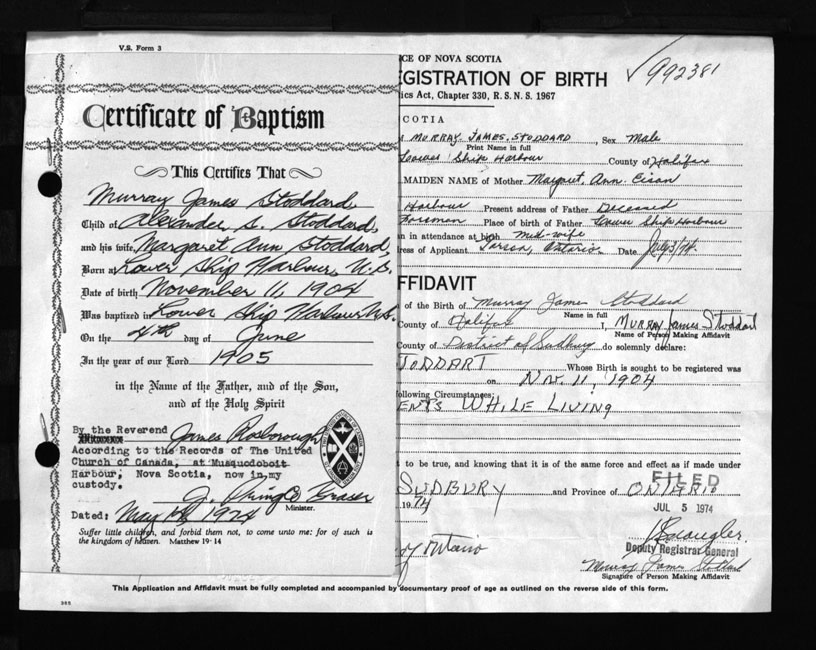 V.S. Form 3
Certificate of Baptism
This Certifies That
Murray James Stoddard
Child of Alexander S. Stoddard,
and his wife, Margaret Ann Stoddard,
Born at Lower Ship Harbour, N.S.
Date of birth November 11, 1904
Was baptized in Lower Ship Harbour N.S.
On the 4th day of June
In the year of our Lord 1905
in the Name of the Father, and of the Son,
and of the Holy Spirit
By the Reverend James Rosborough
According to the Records of The United
Church of Canada, at Musquodoboit
Harbour, Nova Scotia, now in my
custody.
J. Pringle Fraser
Minister.
Dated: May 1974
Suffer little children, and forbid them not, to come unto me: for of such is
the kingdom of heaven. Matthew 19-14
CE OF NOVA SCOTIA
EGISTRATION OF BIRTH
992381
ics Act, Chapter 330, R.S.N.S. 1967
COTIA
MURRAY JAMES, STODDARD, Sex Male
Print Name in full
Lower Ship Harbour County of Halifax
MAIDEN NAME of Mother Margaret, Ann. Eisan
Harbour Present address of Father Deceased
Foreman Place of birth of Father Lower Ship Harbour
an in attendance at birth mid-wife
ress of Applicant Ontario Date July 3/74.
FFIDAVIT
of the Birth of Murray James Stoddard
Name in full
County of Halifax I, Murray James Stoddart
Name of Person Making Affidavit
County of District of Sudbury do solemnly declare:
TODDART Whose Birth is sought to be registered was
on Nov. 11, 1904
ollowing Circumstances:
ENTS WHILE LIVING
to be true, and knowing that it is of the same force and effect as if made under
SUDBURY and Province of ONTARIO
FILED
1974
JUL 5 1974
Deputy Registrar General
Ontario
Murray James Stoddard
Signature of Person Making Affidavit
This Application and Affidavit must be fully completed and accompanied by documentary proof of age as outlined on the reverse side of this form.